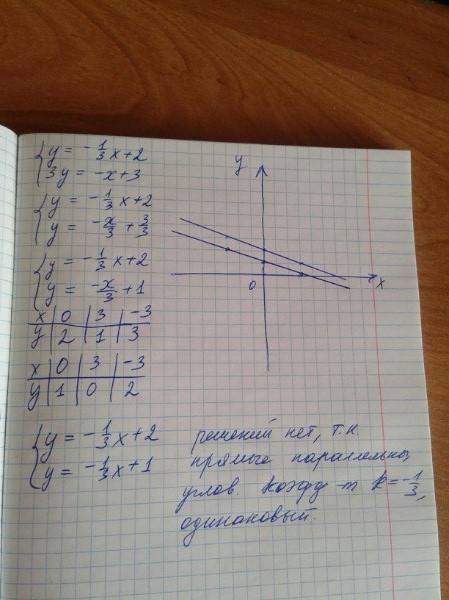 y = -1/3 x + 2
3y = -x + 3
y = -1/3 x + 2
y = -x/3 + 3/3
y = -1/3 x + 2
y = -x/3 + 1
x | 0 | 3 | -3
y | 2 | 1 | 3
x | 0 | 3 | -3
y | 1 | 0 | 2
y = -1/3 x + 2
y = -1/3 x + 1
y
0
x
решений нет, т.к.
прямые параллельны,
углов. коэфф-т k = -1/3,
одинаковый.